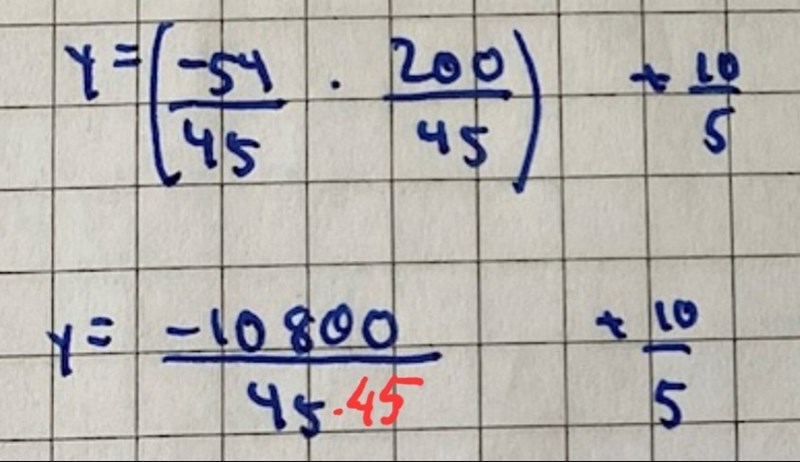 y = (-54/45 · 200/45) + 10/5
y = -10800/45·45 + 10/5